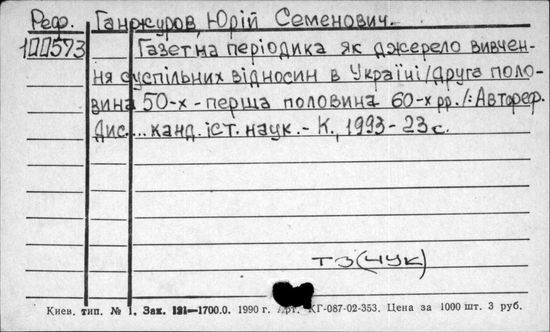 Реф. Ганжуров, Юрій Семенович.
100573 Газетна періодика як джерело вивчен-
ня суспільних відносин в Україні/друга поло-
вина 50-х - перша половина 60-х рр./: Автореф.
Дис.... канд. іст. наук. - К., 1993 - 23 с.
ТЗ(ЧУК)
Киев. тип. № 1. Зак. 191—1700.0. 1990 г. Арт. КГ-087-02-353. Цена за 1000 шт. 3 руб.